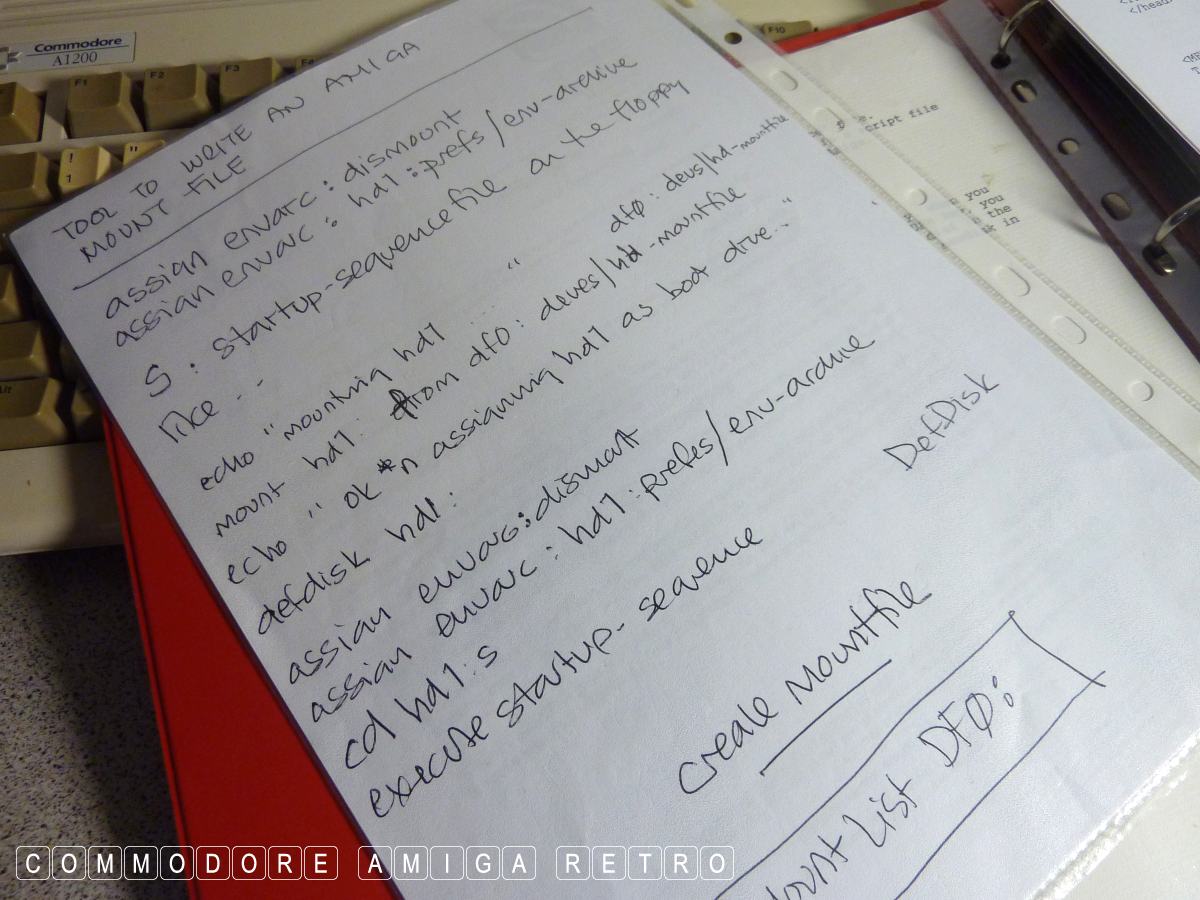 Commodore
A1200
F1
F2
F3
F10
!
1
"
TOOL TO WRITE AN AMIGA
MOUNT FILE
assign envarc: dismount
assign envarc: hd1:prefs/env-archive
S: startup-sequence file on the floppy
like -
echo "mounting hd1 ... "
df0: devs/hd-mountfile
mount hd1: from df0: deves/hd-mountfile
echo "ok *n assigning hd1 as boot drive.. "
defdisk hd1:
assign envarc: dismount
assign envarc: hd1:prefes/env-archive
cd hd1:s
execute startup-sequence
DefDisk
create Mountfile
ount List DF0:
cript file
you
you
the
in
</head
COMMODORE AMIGA RETRO